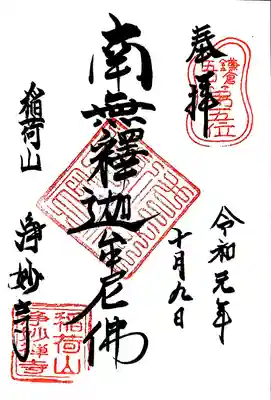 奉拝
鎌倉
五山第五位
令和元年
十月九日
南無釋迦牟尼佛
稲荷山
浄妙寺
稲荷山
浄妙禅寺